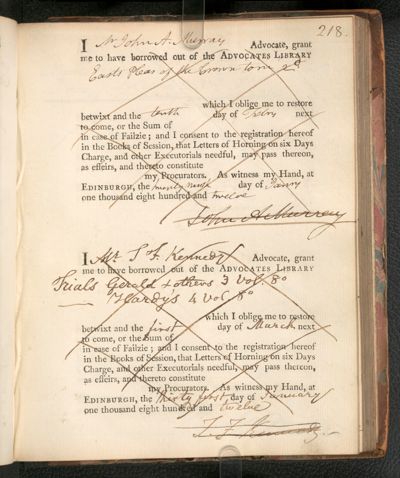 218.
I Mr John A. Murray Advocate, grant
me to have borrowed out of the ADVOCATES LIBRARY
Easts Pleas of the Crown tom 2d
which I oblige me to restore
betwixt and the tenth day of Febry next
to come, or the Sum of
in case of Failzie; and I consent to the registration hereof
in the Books of Session, that Letters of Horning on six Days
Charge, and other Executorials needful, may pass thereon,
as effeirs, and thereto constitute
my Procurators. As witness my Hand, at
EDINBURGH, the twenty ninth day of Janry
one thousand eight hundred and twelve
John A Murray
I Mr T F Kennedy Advocate, grant
me to have borrowed out of the ADVOCATES LIBRARY
Trials Gerald & others 3 Vol. 8o
Hardy's 4 Vol 8o
which I oblige me to restore
betwixt and the first day of March next
to come, or the Sum of
in case of Failzie; and I consent to the registration hereof
in the Books of Session, that Letters of Horning on six Days
Charge, and other Executorials needful, may pass thereon,
as effeirs, and thereto constitute
my Procurators. As witness my Hand, at
EDINBURGH, the thirty first day of January
one thousand eight hundred and twelve
T. F. Kennedy